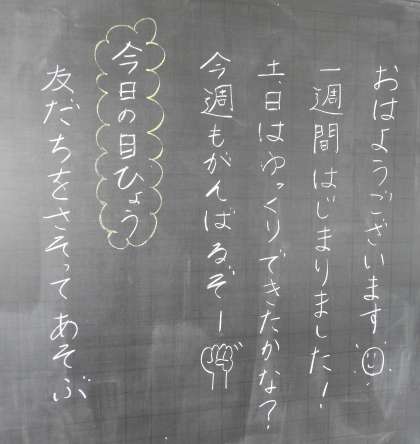 おはようございます
一週間はじまりました！
土日はゆっくりできたかな？
今週もがんばるぞー
今日の目ひょう
友だちをさそってあそぶ